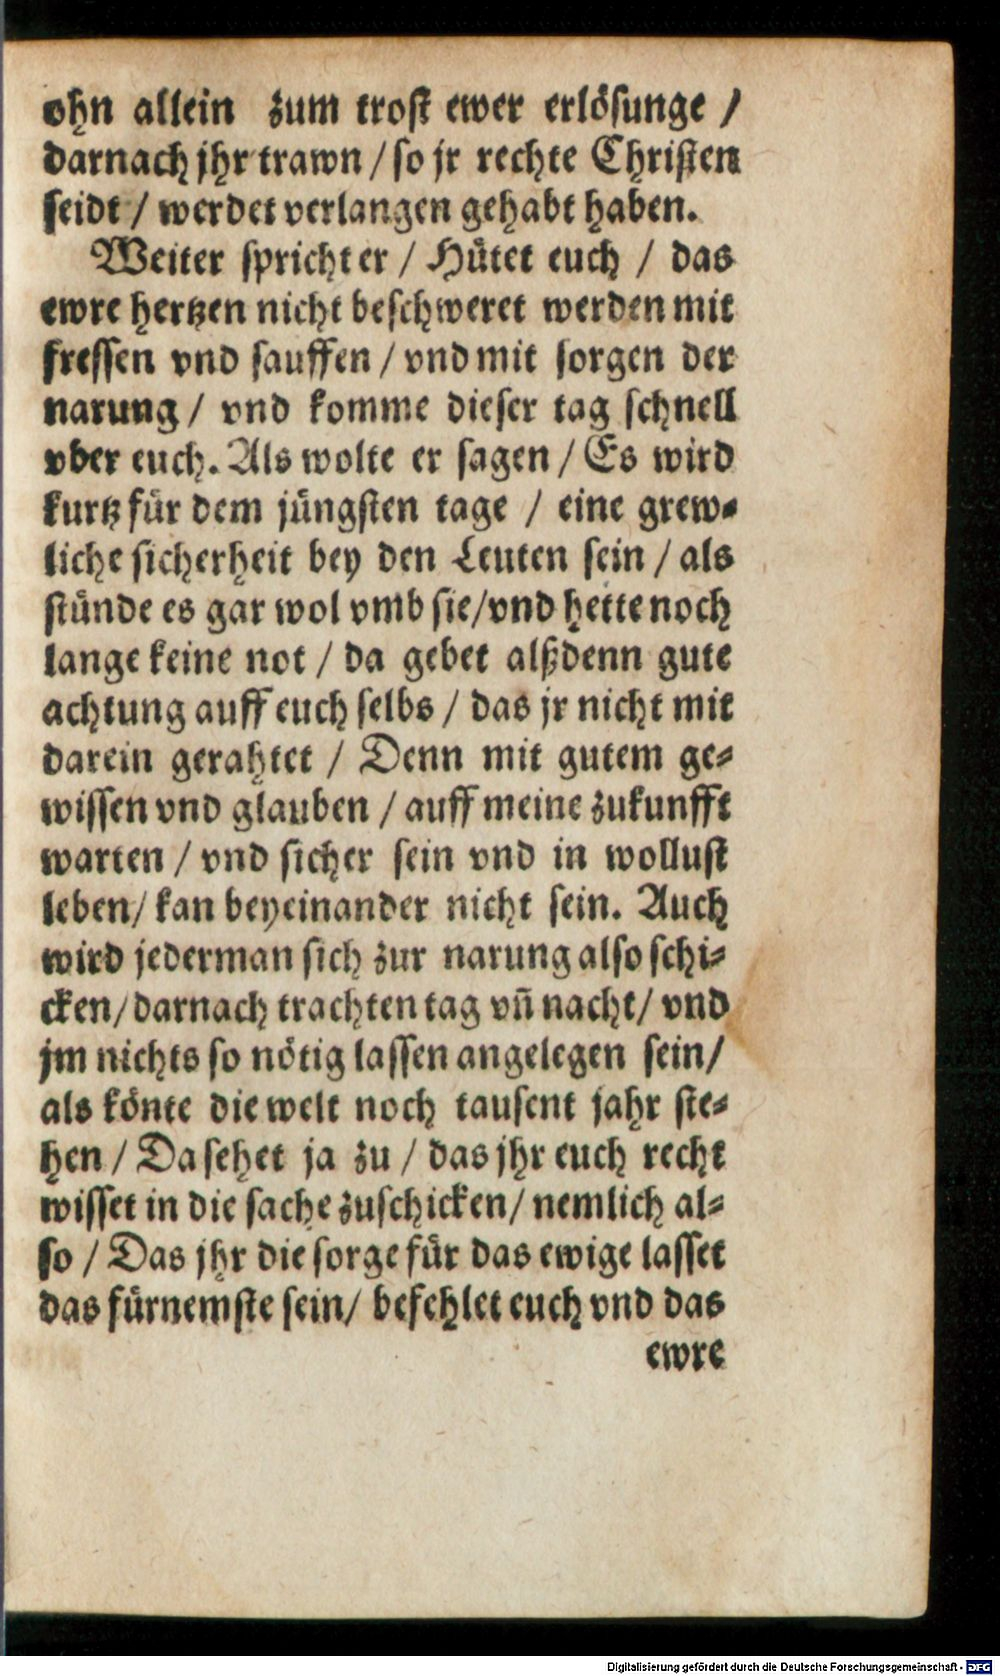 ohn allein zum trost ewer erlösunge /
darnach jhr trawn / so jr rechte Christen
seidt / werdet verlangen gehabt haben.
Weiter spricht er / Hütet euch / das
ewre hertzen nicht beschweret werden mit
fressen vnd sauffen / vnd mit sorgen der
narung / vnd komme dieser tag schnell
vber euch. Als wolte er sagen / Es wird
kurtz für dem jüngsten tage / eine grew-
liche sicherheit bey den Leuten sein / als
stünde es gar wol vmb sie / vnd hette noch
lange keine not / da gebet alßdenn gute
achtung auff euch selbs / das jr nicht mit
darein gerahtet / Denn mit gutem ge-
wissen vnd glauben / auff meine zukunfft
warten / vnd sicher sein vnd in wollust
leben / kan beyeinander nicht sein. Auch
wird jederman sich zur narung also schi-
cken / darnach trachten tag vn̄ nacht / vnd
jm nichts so nötig lassen angelegen sein /
als könte die welt noch tausent jahr ste-
hen / Da sehet ja zu / das jhr euch recht
wisset in die sache zuschicken / nemlich al-
so / Das jhr die sorge für das ewige lasset
das fürnemste sein / befehlet euch vnd das
ewre
Digitalisierung gefördert durch die Deutsche Forschungsgemeinschaft - DFG